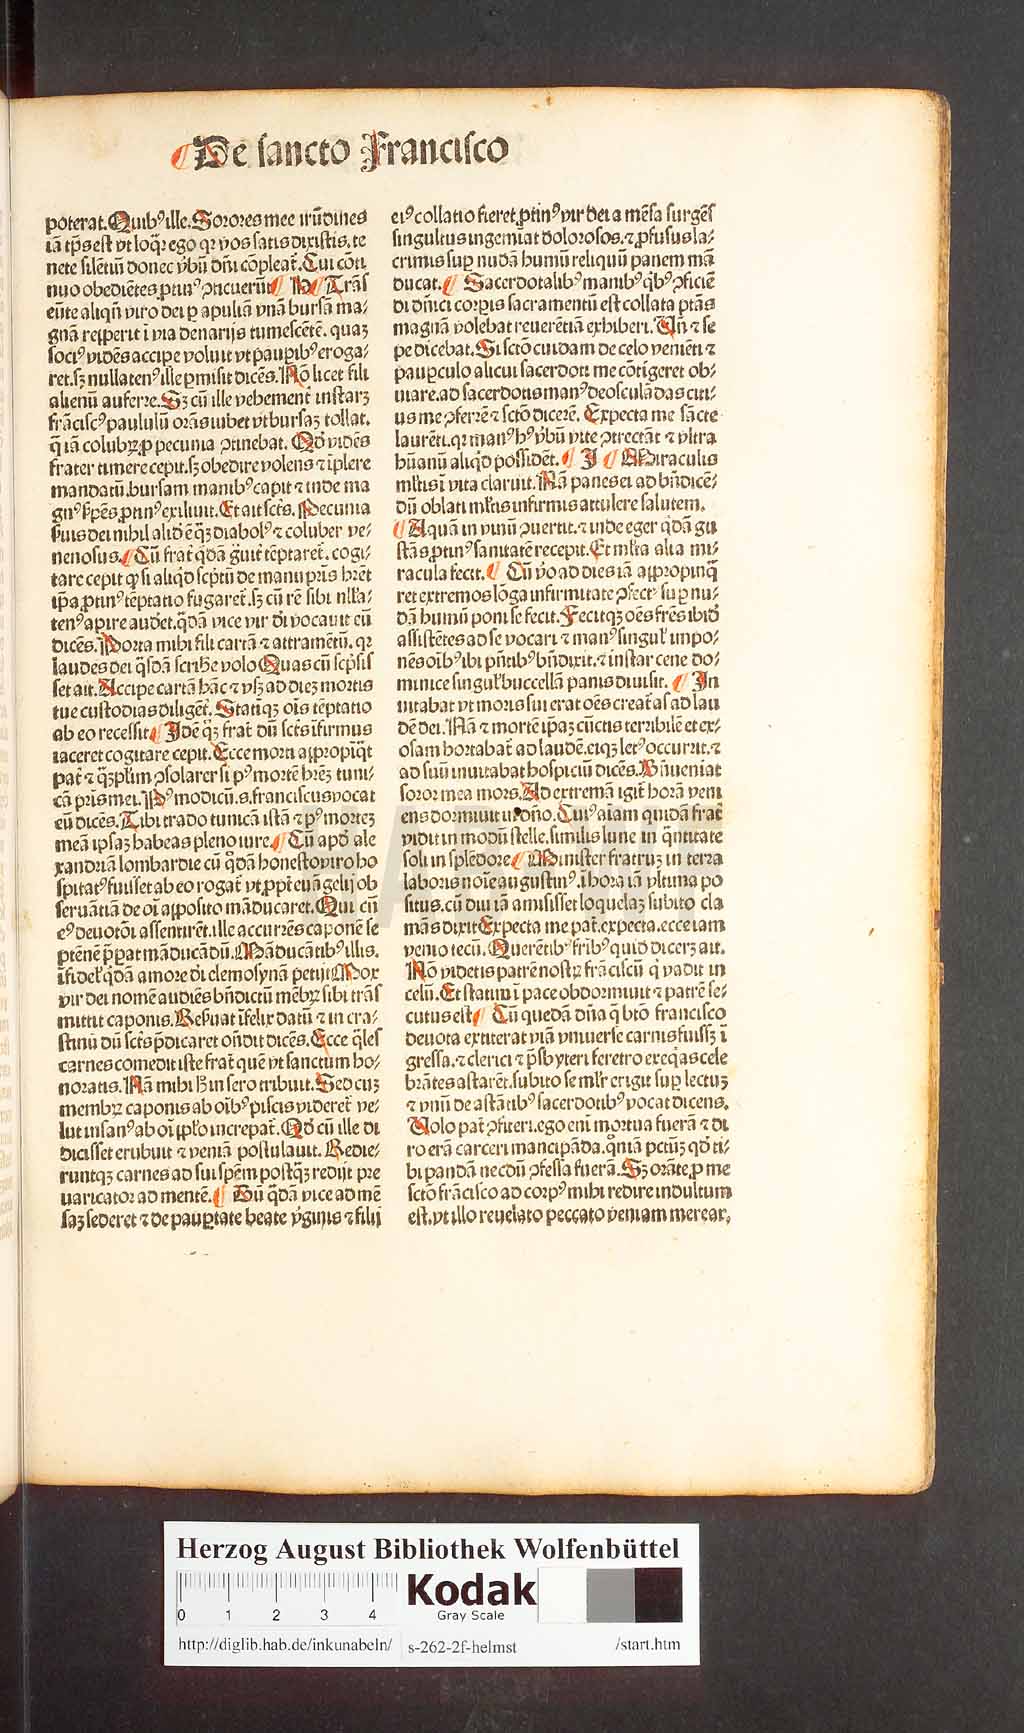 De sancto Francisco
poterat. Quibꝰ ille. Sorores mee irūdines
iā tp̄s est vt loqr̄ ego qr vos satis dixistis. te
nete silētiū donec v̓bū dn̄i cōpleat̄. Cui cōti
nuo obediētes ꝓtinꝰ ꝯticuerūt
Trās
eūte aliqn̄ viro dei ꝑ apuliā vnā bursā ma⸗
gnā reꝑperit ī via denarijs tumescētē. quaꝫ
sociꝰ vidēs accipe voluit vt pauꝑibꝰ eroga⸗
ret. sꝫ nullatenꝰ ille ꝑmisit dicēs. Nō licet fili
alienū auferre. Sꝫ cū ille vehement̄ instarꝫ
frāciscꝰ paululū orās iubet vt bursaꝫ tollat.
q̄ iā colubꝝ ꝓ pecunia ꝯtinebat. Qd̓ vidēs
frater timere cepit. sꝫ obedire volens ⁊ īplere
mandatū. bursam manibꝰ capit ⁊ inde ma
gnꝰ ẜpēs ꝓtinꝰ exiliuit. Et ait sctꝰ. Pecunia
ẜuis dei nihil aliđ ē q̄ꝫ diabolꝰ ⁊ coluber ve⸗
nenosus. Cū frat̄ q̓dā g̓uit̄ tēptaret̄. cogi⸗
tare cepit ꝙ si aliq̓d sc̓ptū de manu pr̄is hr̄et
ip̄a ꝓtinꝰ tēptatio fugaret̄. sꝫ cū rē sibi nll̓a⸗
tenꝰ apire audet̄. q̓dā vice vir d̓i vocauit eū
dicēs. Porta mihi fili cartā ⁊ attramētū. qr
laudes dei q̄sdā scribe̓ volo Quas cū sc̓psis
set ait. Accipe cartā hāc ⁊ vsꝫ ad dieꝫ mortis
tue custodias diligēt̓. Statiqꝫ oīs tēptatio
ab eo recessit Idē q̄ꝫ frat̄ dū sctꝰ īfirmus
iaceret cogitare cepit. Ecce mors aꝑpropiq̄t
pat̄ ⁊ q̄ꝫplim̄ ꝯsolarer si pꝰ mortē hrēꝫ tuni⸗
cā pris mei. Pꝰ modicū .s. franciscus vocat
eū dicēs. Tibi trado tunicā istā ⁊ pꝰ morteꝫ
meā ipsaꝫ habeas pleno iure. Cū apd̓ ale
xandriā lombardie cū q̓dā honesto viro ho
spitatꝰ fuisset ab eo rogat̄ vt ꝓpt̄ euāgelij ob
seruātiā de oī aꝑposito māducaret. Qui cū
eꝰ deuotōi assentirēt. ille accurrēs caponē se
ptēnē p̄pat māducādū. Māducātibꝰ illis.
īfidel̓ q̓dā amore d̓i elemosynā petiit. Mox
vir dei nomē audiēs bn̄dictū mēbꝝ sibi trās
mittit caponis. Reẜuat īfelix datū ⁊ in cra⸗
stinū dū sctꝰ p̄dicaret on̄dit dicēs. Ecce q̄les
carnes comedit iste frat̄ quē vt sanctum ho⸗
noratis. Nā mihi h̓ in sero tribuit. Sed cuꝫ
membꝝ caponis ab oībꝰ piscis videret̄ ve⸗
lut insanꝰ ab oī ꝓpl̓o increpat̄. Qd̓ cū ille di
dicisset erubuit ⁊ veniā postulauit. Redie⸗
runtqꝫ carnes ad sui spēm postq̄ꝫ redijt pre
uaricator ad mentē. Dū q̓dā vice ad mē
saꝫ sederet ⁊ de pauꝑtate beate v̓ginis ⁊ filij
eiꝰ collatio fieret. ꝓtinꝰ vir dei a mēsa surgēs
singultus ingeminat dolorosos. ⁊ ꝓfusus la⸗
crimis suꝑ nudā humū reliquū panem mā
ducat. Sacerdotalibꝰ manibꝰ q̓bꝰ ꝯficiē
di dn̄ici corꝑis sacramentū est collata ptās
magnā volebat reuerētiā exhiberi. Vn̄ ⁊ se
pe dicebat. Si sctō cuidam de celo veniēti ⁊
pauꝑculo alicui sacerdoti me cōtigeret ob⸗
uiare. ad sacerdotis manꝰ deosculādas citi⸗
us me ꝯferrē ⁊ sctō dicerē. Expecta me sācte
laurēti. qr manꝰ hꝰ v̓bū vite ꝯtrectāt ⁊ vltra
hūanū aliq̓d possidēt.
I Miraculis
ml̓tis ī vita claruit. Nā panes ei ad bn̄dicē⸗
dū oblati ml̓tis infirmis attulere salutem.
Aquā in vinū ꝯuertit. ⁊ inde eger q̓dā gu
stās ꝓtinꝰ sanitatē recepit. Et ml̓ta alia mi⸗
racula fecit. Cū v̓o ad dies iā aꝑpropinq̄
ret extremos lōga infirmitate ꝯfectꝰ suꝑ nu⸗
dā humū poni se fecit. Fecitqꝫ oēs fr̄es ibid̓
assistētes ad se vocari ⁊ manꝰ singul̓ impo⸗
nēs oībꝰ ibi pn̄tibꝰ bn̄dixit. ⁊ instar cene do⸗
minice singul̓ buccellā panis diuisit. In
uitabat vt moris sui erat oēs creat̄as ad lau
dē dei. Nā ⁊ mortē ip̄aꝫ cūctis terribilē et ex⸗
osam hortabat̄ ad laudē. eiqꝫ letꝰ occurrit. ⁊
ad suū inuitabat hospiciū dicēs. Bn̄ veniat
soror mea mors. Ad extremā igit̄ horā veni
ens dormiuit ī dn̄o. Cuiꝰ aīam quidā frat̄
vidit in modū stelle. similis lune in q̄ntitate
soli in splēdore Minister fratruꝫ in terra
laboris noīe augustinꝰ. ī hora iā vltima po
situs. cū diu iā amisisset loquelaꝫ subito cla
mās dixit Expecta me pat̄. expecta. ecce iam
venio tecū. Querētibꝰ frībꝰ quid dicerꝫ ait.
Nō videtis patrē nostꝝ frāciscū q̓ vadit in
celū. Et statim ī pace obdormiuit ⁊ patrē se⸗
cutus est Cū quedā dn̄a q̄ btō francisco
deuota extiterat viā vniuerse carnis fuissꝫ ī
gressa. ⁊ clerici ⁊ p̄sbyteri feretro exeq̄as cele
brātes astarēt. subito se ml̓r erigit suꝑ lectuꝫ
⁊ vnū de astātibꝰ sacerdotibꝰ vocat dicens.
Volo pat̄ ꝯfiteri. ego eni mortua fuerā ⁊ di
ro erā carceri mancipāda. qm̄iā pctm̄ꝫ qd̓ ti⸗
bi pandā necdū ꝯfessa fuerā. Sꝫ orāte ꝓ me
sctō frācisco ad corpꝰ mihi redire indultum
est. vt illo reuelato peccato veniam merear,
Herzog August Bibliothek Wolfenbüttel
0 1 2 3 4
Kodak
Gray Scale
http://diglib.hab.de/inkunabeln/ s-262-2f-helmst /start.htm